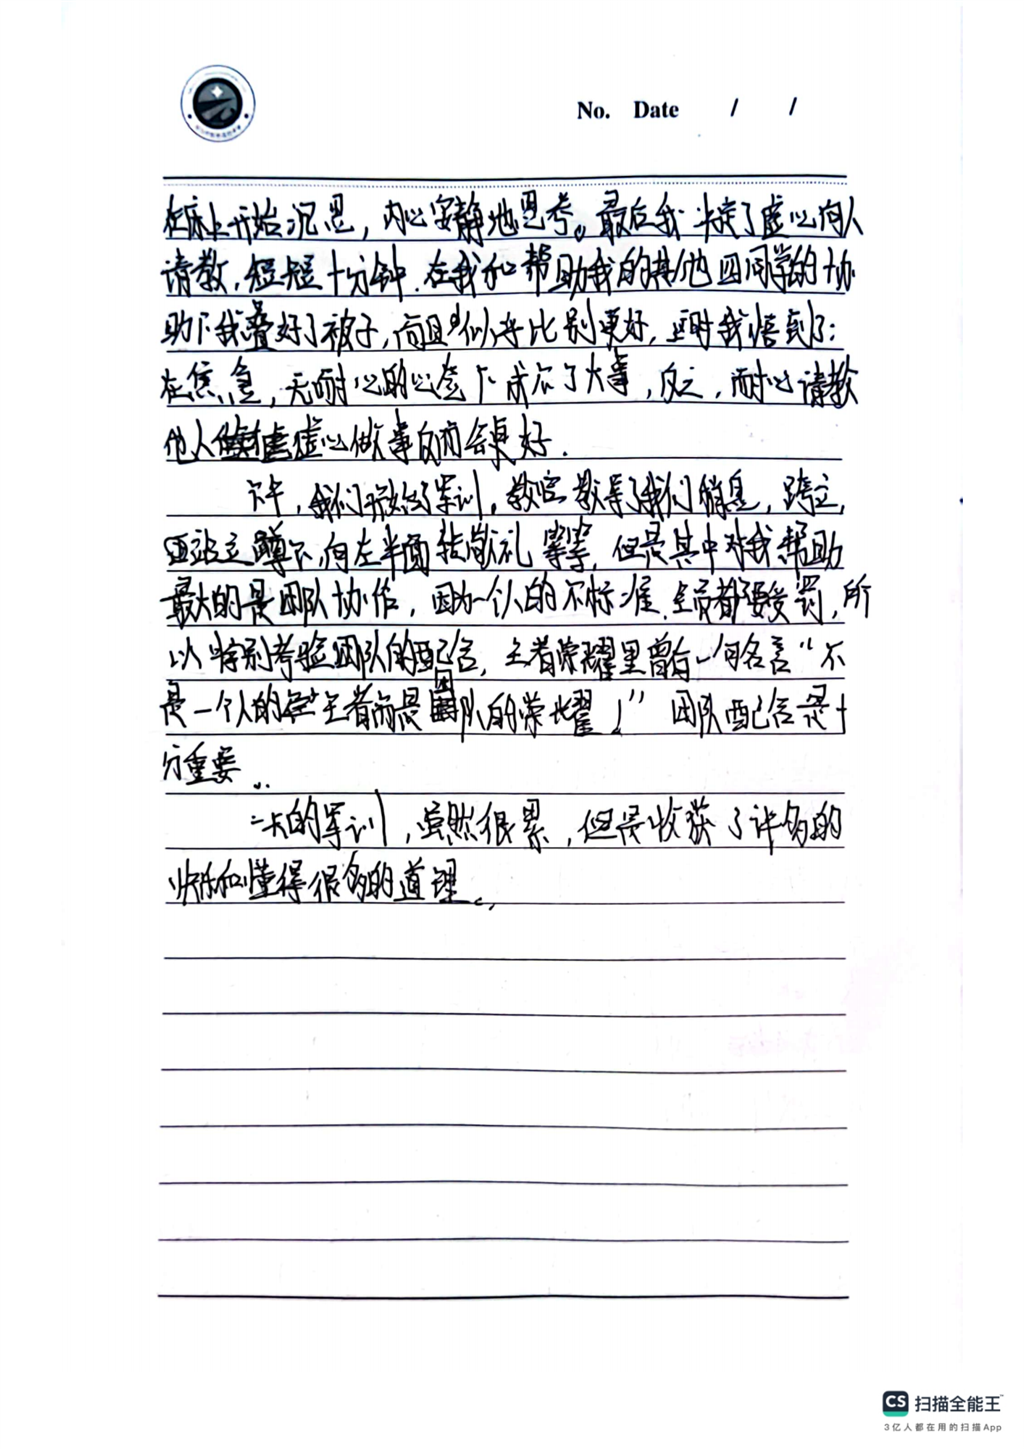 No. Date / /
在床上开始沉思，内心安静地思考。最后我决定了虚心向人
请教，短短十分钟，在我和帮助我的其他四同学的协
助下我叠好了被子，而且似乎比别更好，这时我悟到了：
在焦急，无耐心的心态下成不了大事，反之，耐心请教
他人虚心做事反而会更好．
下午，我们开始了军训，教官教导了我们稍息，跨立，
立蹲下，向左半面转敬礼等等，但是其中对我帮助
最大的是团队协作，因为一个人的不标准，全员都要受罚，所
以特别考验团队的配合，王者荣耀里曾有一句名言“不
是一个人的王者而是团队的荣耀！”团队配合是十
分重要．
一天的军训，虽然很累，但是收获了许多的
快乐和懂得很多的道理。
CS 扫描全能王
3亿人都在用的扫描App